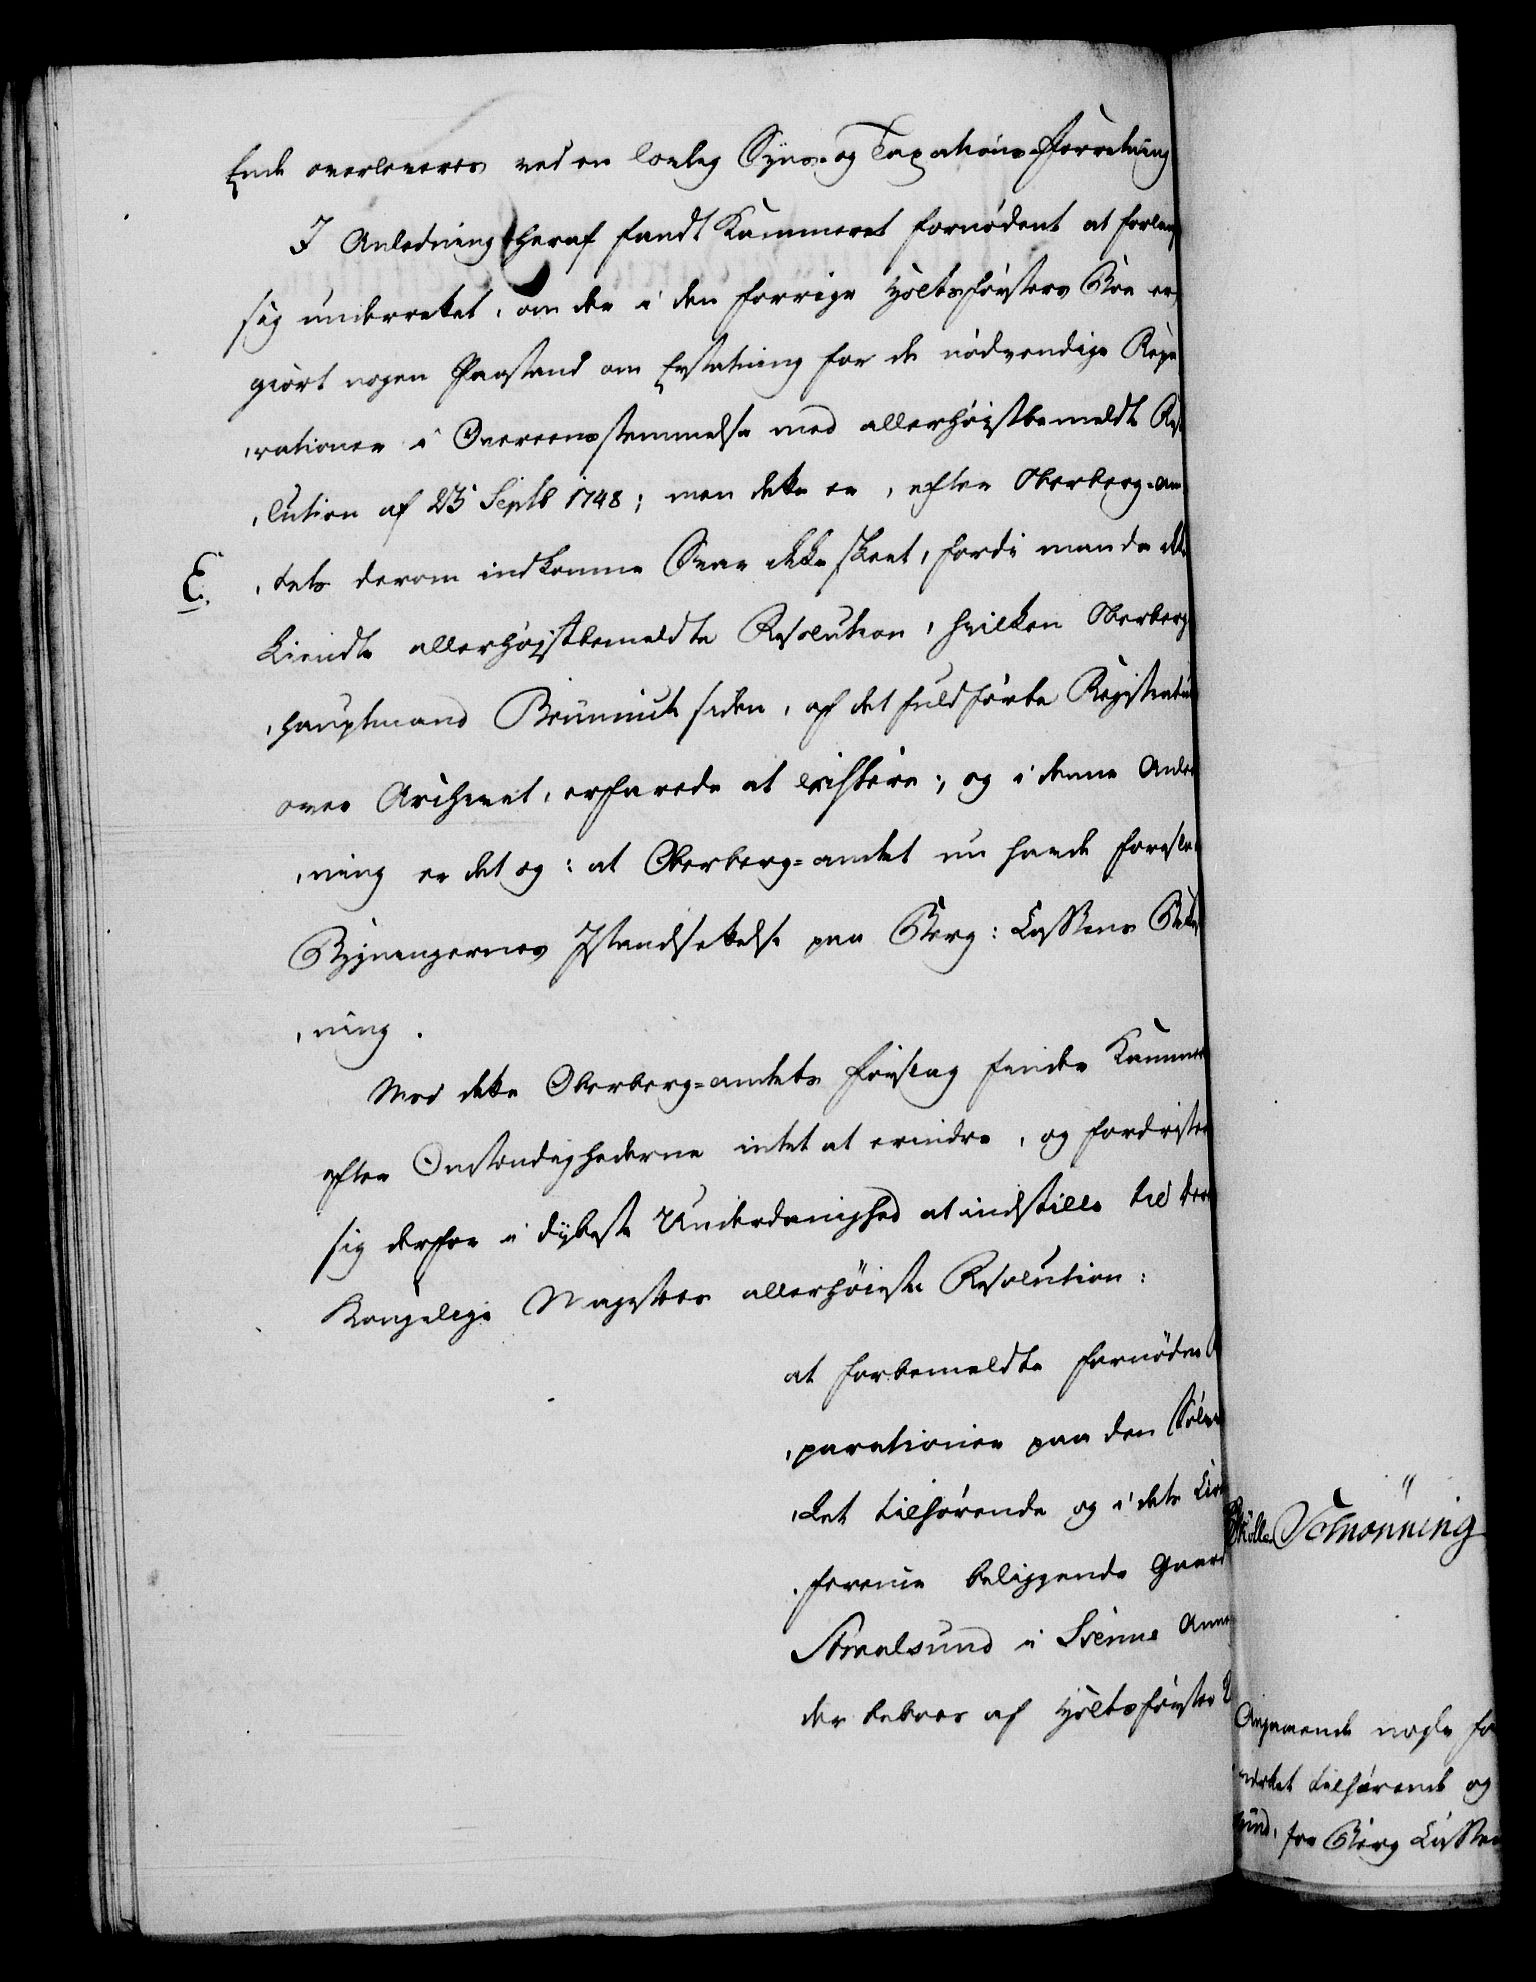 Ende overleveres ved en lovlig Syns- og Taxations-Forretning
I Anledning heraf fandt Kammeret fornødent at forlan
sig underrettet, om der i den forrige Holtsførsters Boe er
giort nogen Paastand om Erstatning for de nødvendige Repa
,rationer i Overeensstemmelse med allerhøistbemeldte Reso
,lution af 23 Septb 1748; men dette er, efter Oberberg-am
E. ,tets derom indkomne Svar ikke skeet, fordi man da ikke
kiendte allerhøjstbemeldte Resolution, hvilken Oberberg
,hauptmand Brünnich siden, af det fuldførte Registratur
over Archivet, erfarede at existere; og i denne Anled
,ning er det og: at Oberberg=amtet nu havde foreslaa
Bygningernes Istandsettelse paa Berg: Cassens Bekost
,ning.
Mod dette Oberberg=amtets Forslag finder Kamme
efter Omstændighederne intet at erindre, og fordrister
sig derfor i dybeste Underdanighed at indstille til Der
Kongelige Majestæts allerhöieste Resolution:
at forbemeldte fornødne
,parationer paa den Sölv
,ket tilhørende og i dets Cir
,ference beliggende Gaard
Stralsund i Svenne Anne
der beboes af Holtsførster
Møller Schmönning
Angaaende nogle fo
verket tilhørende og
sund, for Berg Cassen